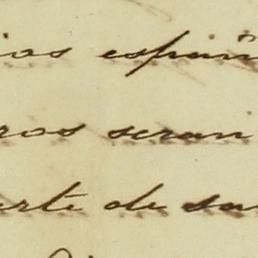 ios españ
ros seran
arte de sa